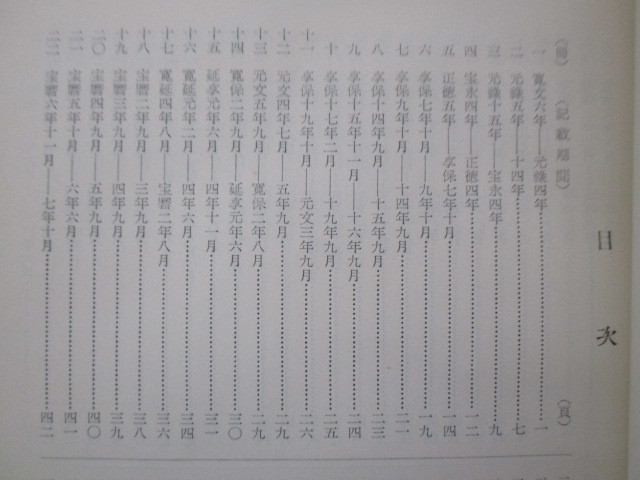 目次
（冊）（記載期間）（頁）
一 寛文六年――元禄四年…………一
二 元禄五年――十四年…………七
三 元禄十五年――宝永四年…………九
四 宝永四年――正徳四年…………一二
五 正徳五年――享保七年十月…………一四
六 享保七年十月――九年十月…………一九
七 享保九年十月――十四年九月…………二一
八 享保十四年九月――十五年九月…………二三
九 享保十五年十一月――十六年九月…………二四
十 享保十七年二月――十九年九月…………二五
十一 享保十九年十月――元文三年九月…………二六
十二 元文四年七月――五年九月…………二九
十三 元文五年九月――寛保二年八月…………二九
十四 寛保二年九月――延享元年六月…………三〇
十五 延享元年六月――四年十一月…………三一
十六 寛延元年二月――四年六月…………三四
十七 寛延四年八月――宝暦二年八月…………三六
十八 宝暦二年九月――三年九月…………三八
十九 宝暦三年九月――四年九月…………三九
二〇 宝暦四年九月――五年九月…………四〇
二一 宝暦五年十月――六年六月…………四一
二二 宝暦六年十一月――七年十月…………四二